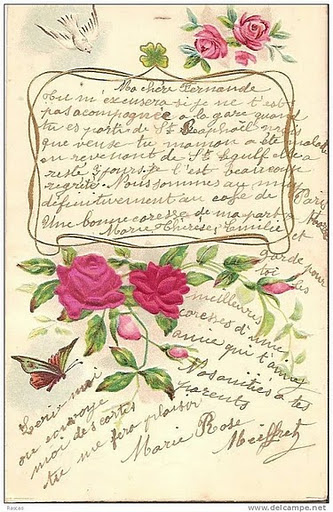 Ma chère Fernande
Tu m'excusera si je ne t'est
pas acompagnée a la gare quand
tu es partie de St Raphaël mais
que veux tu maman a été malade
en revenant de St Egulf elle a
resté 3 jours je t'est beaucoup
regrété. Nous sommes au muy
définitivement au café de Paris
Une bonne caresse de ma part a
Marie Thérèse, Emilie et
garde pour
toi les
meilleures
caresses d'une
amie qui t'aime
Nos amitiés a tes
parents
Ecris moi
ou envoye
moi des cartes
tu me fera plaisir
Marie Rose
Meiffret
© www.delcampe.net